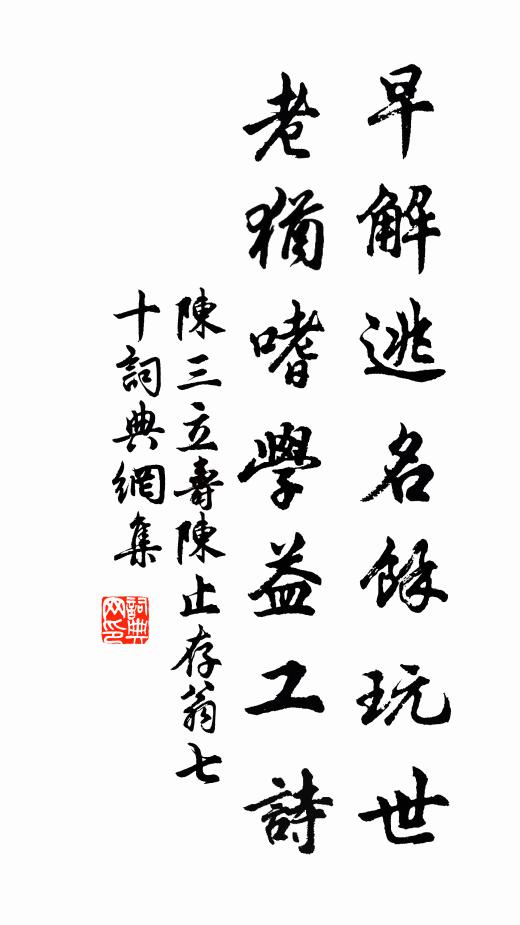 早解逃名餘玩世
老猶嗜學益工詩
陳三立壽陳止存翁七
十詞典網集
詞典
网印